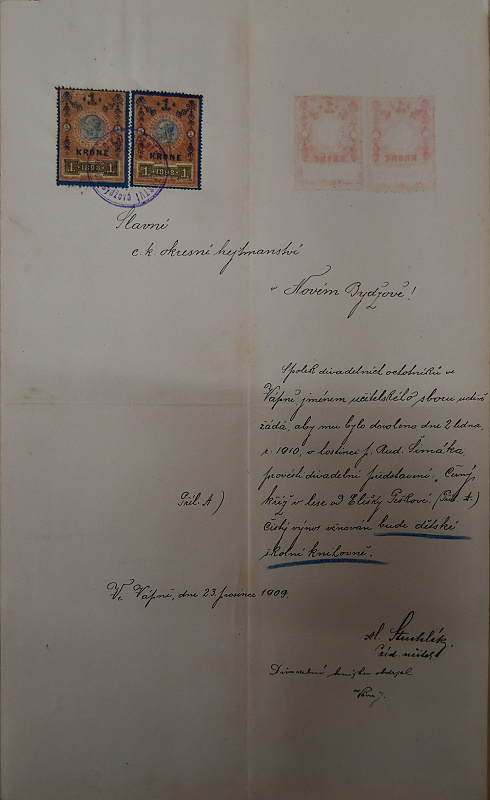 1 1
KRONE KRONE
1 1898 1 1 1898 1
Slavné
c. k. okresní hejtmanství
v Novém Bydžově!
Spolek divadelních ochotníků ve
Vápně jménem učitelského sboru uctivě
žádá, aby mu bylo dovoleno dne 2. ledna
r. 1910, v hostinci p. Rud. Šimáka,
provésti divadelní představení „Černý
kříž v lese od Elišky Peškové. (Příl. A.)
Příl. A)
Čistý výnos věnován bude dětské
školní knihovně.
Ve Vápně, dne 23. prosince 1909.
Al. Stuchlík,
říd. učitel.
Divadelní knížku obdržel